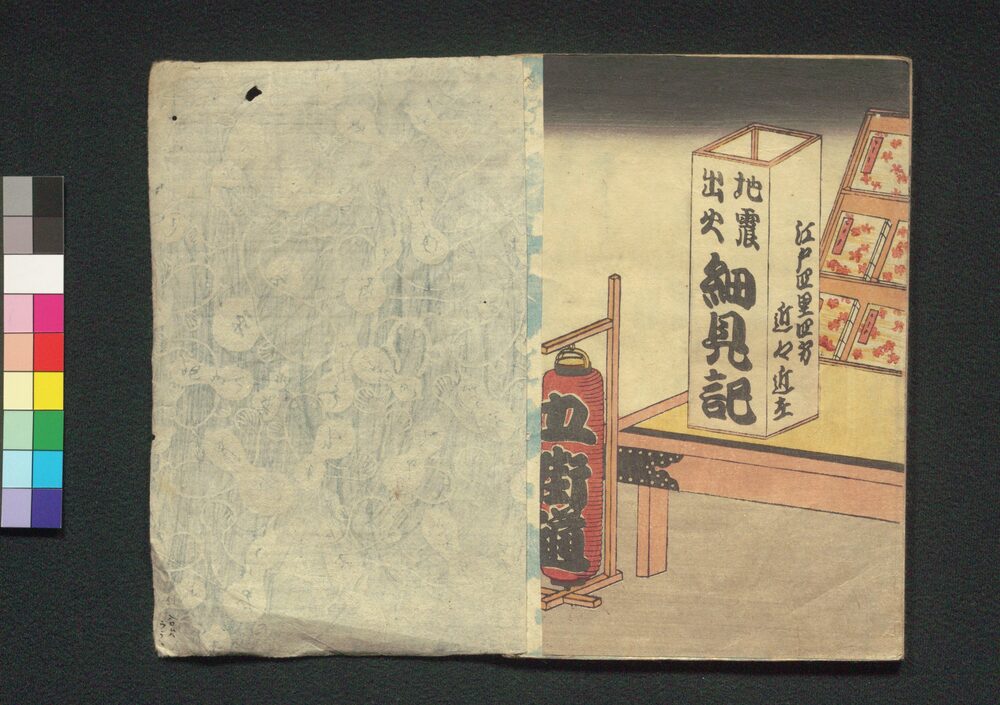 地震
出火
細見記
江戸四里四方
近々近在
五街道